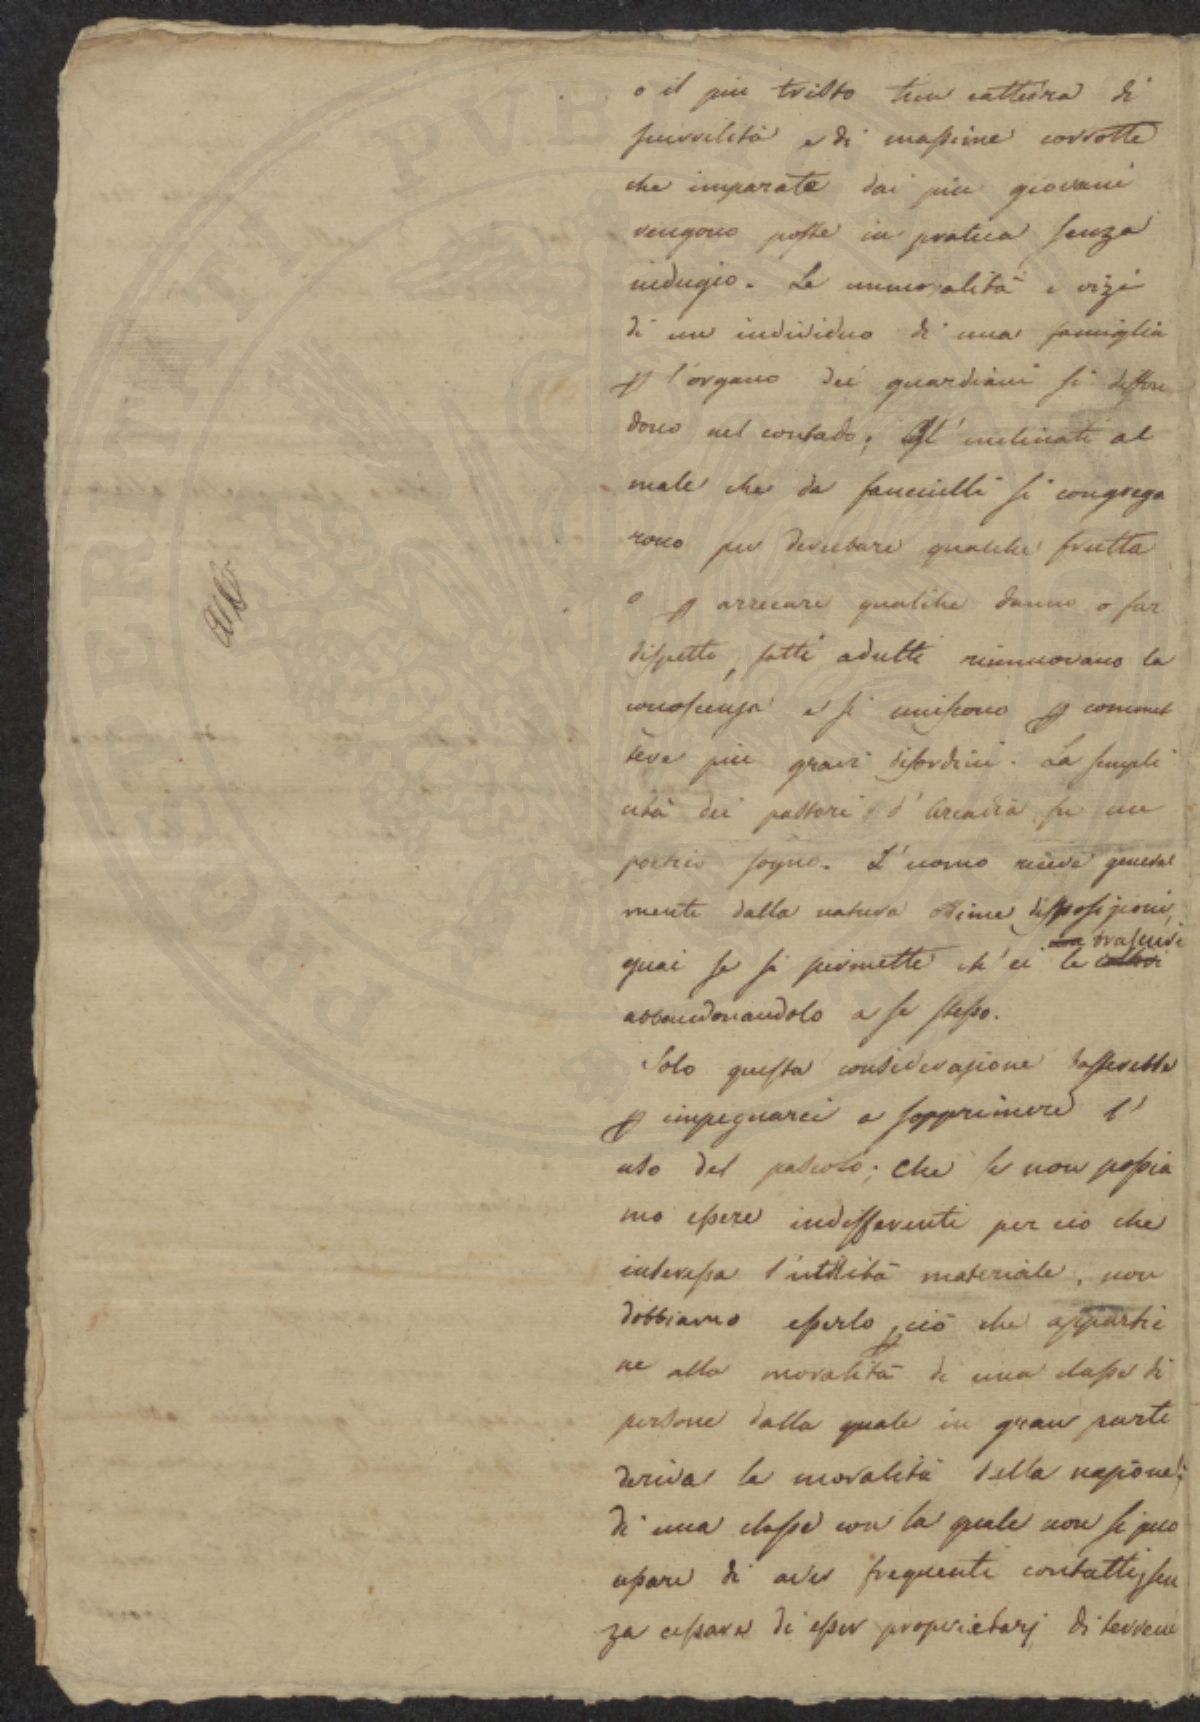 o il più tristo tien cattedra di
scurrilità e di massime corrotte
che imparate dai più giovani
vengono poste in pratica senza
indugio. Le immoralità e vizi
di un individuo di una famiglia
p l'organo dei guardiani si diffon
dono nel contado; Gl'inclinati al
male che da fanciulli si congrega
rono per derubare qualche frutta
o p arrecare qualche danno o far
dispetto, fatti adulti rinnuovano la
conoscenza e si uniscono p commet
tere più gravi disordini. La sempli
cità dei pastori d'Arcadia fu un
poetico sogno. L'uomo riceve general
mente dalla natura ottime disposizioni,
guai se si permette ch'ei le trascuri
abbandonandolo a se stesso.
Solo questa considerazione basterebbe
p impegnarci a sopprimere l'
uso del pascolo; che se non possia
mo essere indifferenti per ciò che
interessa l'utilità materiale, non
dobbiamo esserlo p ciò che appartie
ne alla moralità di una classe di
persone dalla quale in gran parte
deriva la moralità della nazione;
di una classe con la quale non si può
cessare di aver frequenti contatti, sen
za cessare di esser proprietarj di terreni